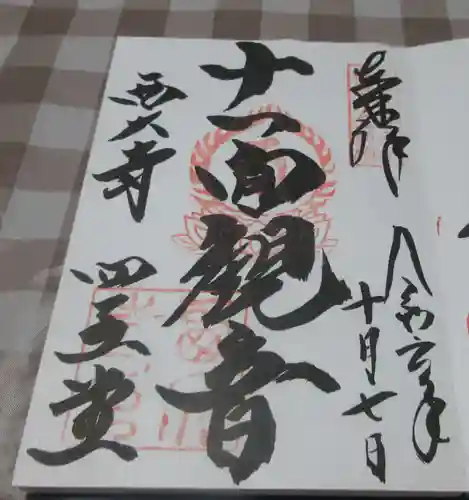 奉拝
令和六年
十月七日
十一面観音
西大寺
四王堂